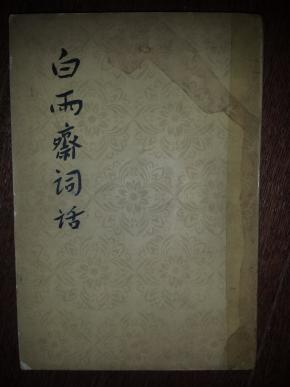 白雨齋词话